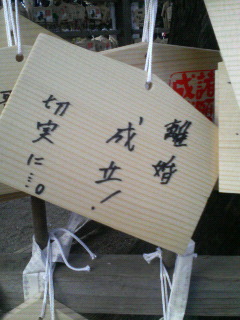 離婚
成立!
切実に…。
諸
成